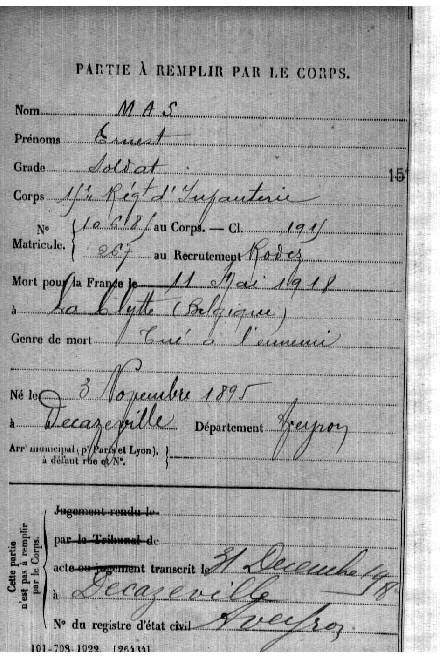 PARTIE À REMPLIR PAR LE CORPS.
Nom MAS
Prénoms Ernest
Grade Soldat
15e
Corps 15e Régt d'Infanterie
N° Matricule. { 10 681 au Corps. — Cl. 1915
267 au Recrutement Rodez
Mort pour la France le 11 Mai 1918
à La Clytte (Belgique)
Genre de mort Tué à l'ennemi
Né le 3 Novembre 1895
à Decazeville Département Aveyron
Arrt municipal (pr Paris et Lyon),
à défaut rue et N°.
Cette partie
n'est pas à remplir
par le Corps.
Jugement rendu le
par le Tribunal de
acte ou jugement transcrit le 31 Decembre 1918
à Decazeville
N° du registre d'état civil Aveyron
101-708-1922. [26434]